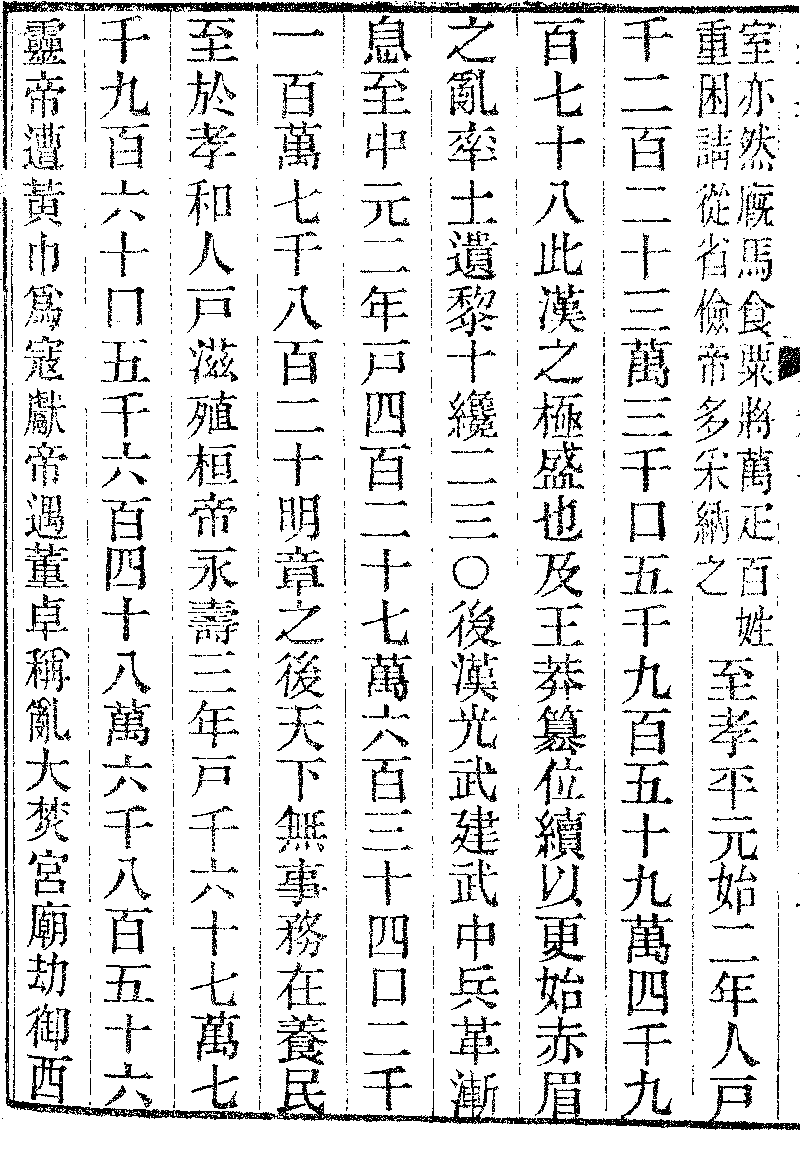 室亦然廐馬食粟將萬疋百姓
重困請從省儉帝多采納之
至孝平元始二年人戸
千二百二十三萬三千口五千九百五十九萬四千九
百七十八此漢之極盛也及王莽篡位續以更始赤眉
之亂率土遺黎十纔二三〇後漢光武建武中兵革漸
息至中元二年戸四百二十七萬六百三十四口二千
一百萬七千八百二十明章之後天下無事務在養民
至於孝和人戸滋殖桓帝永壽三年戸千六十七萬七
千九百六十口五千六百四十八萬六千八百五十六
靈帝遭黃巾爲寇獻帝遇董卓稱亂大焚宮廟劫御西